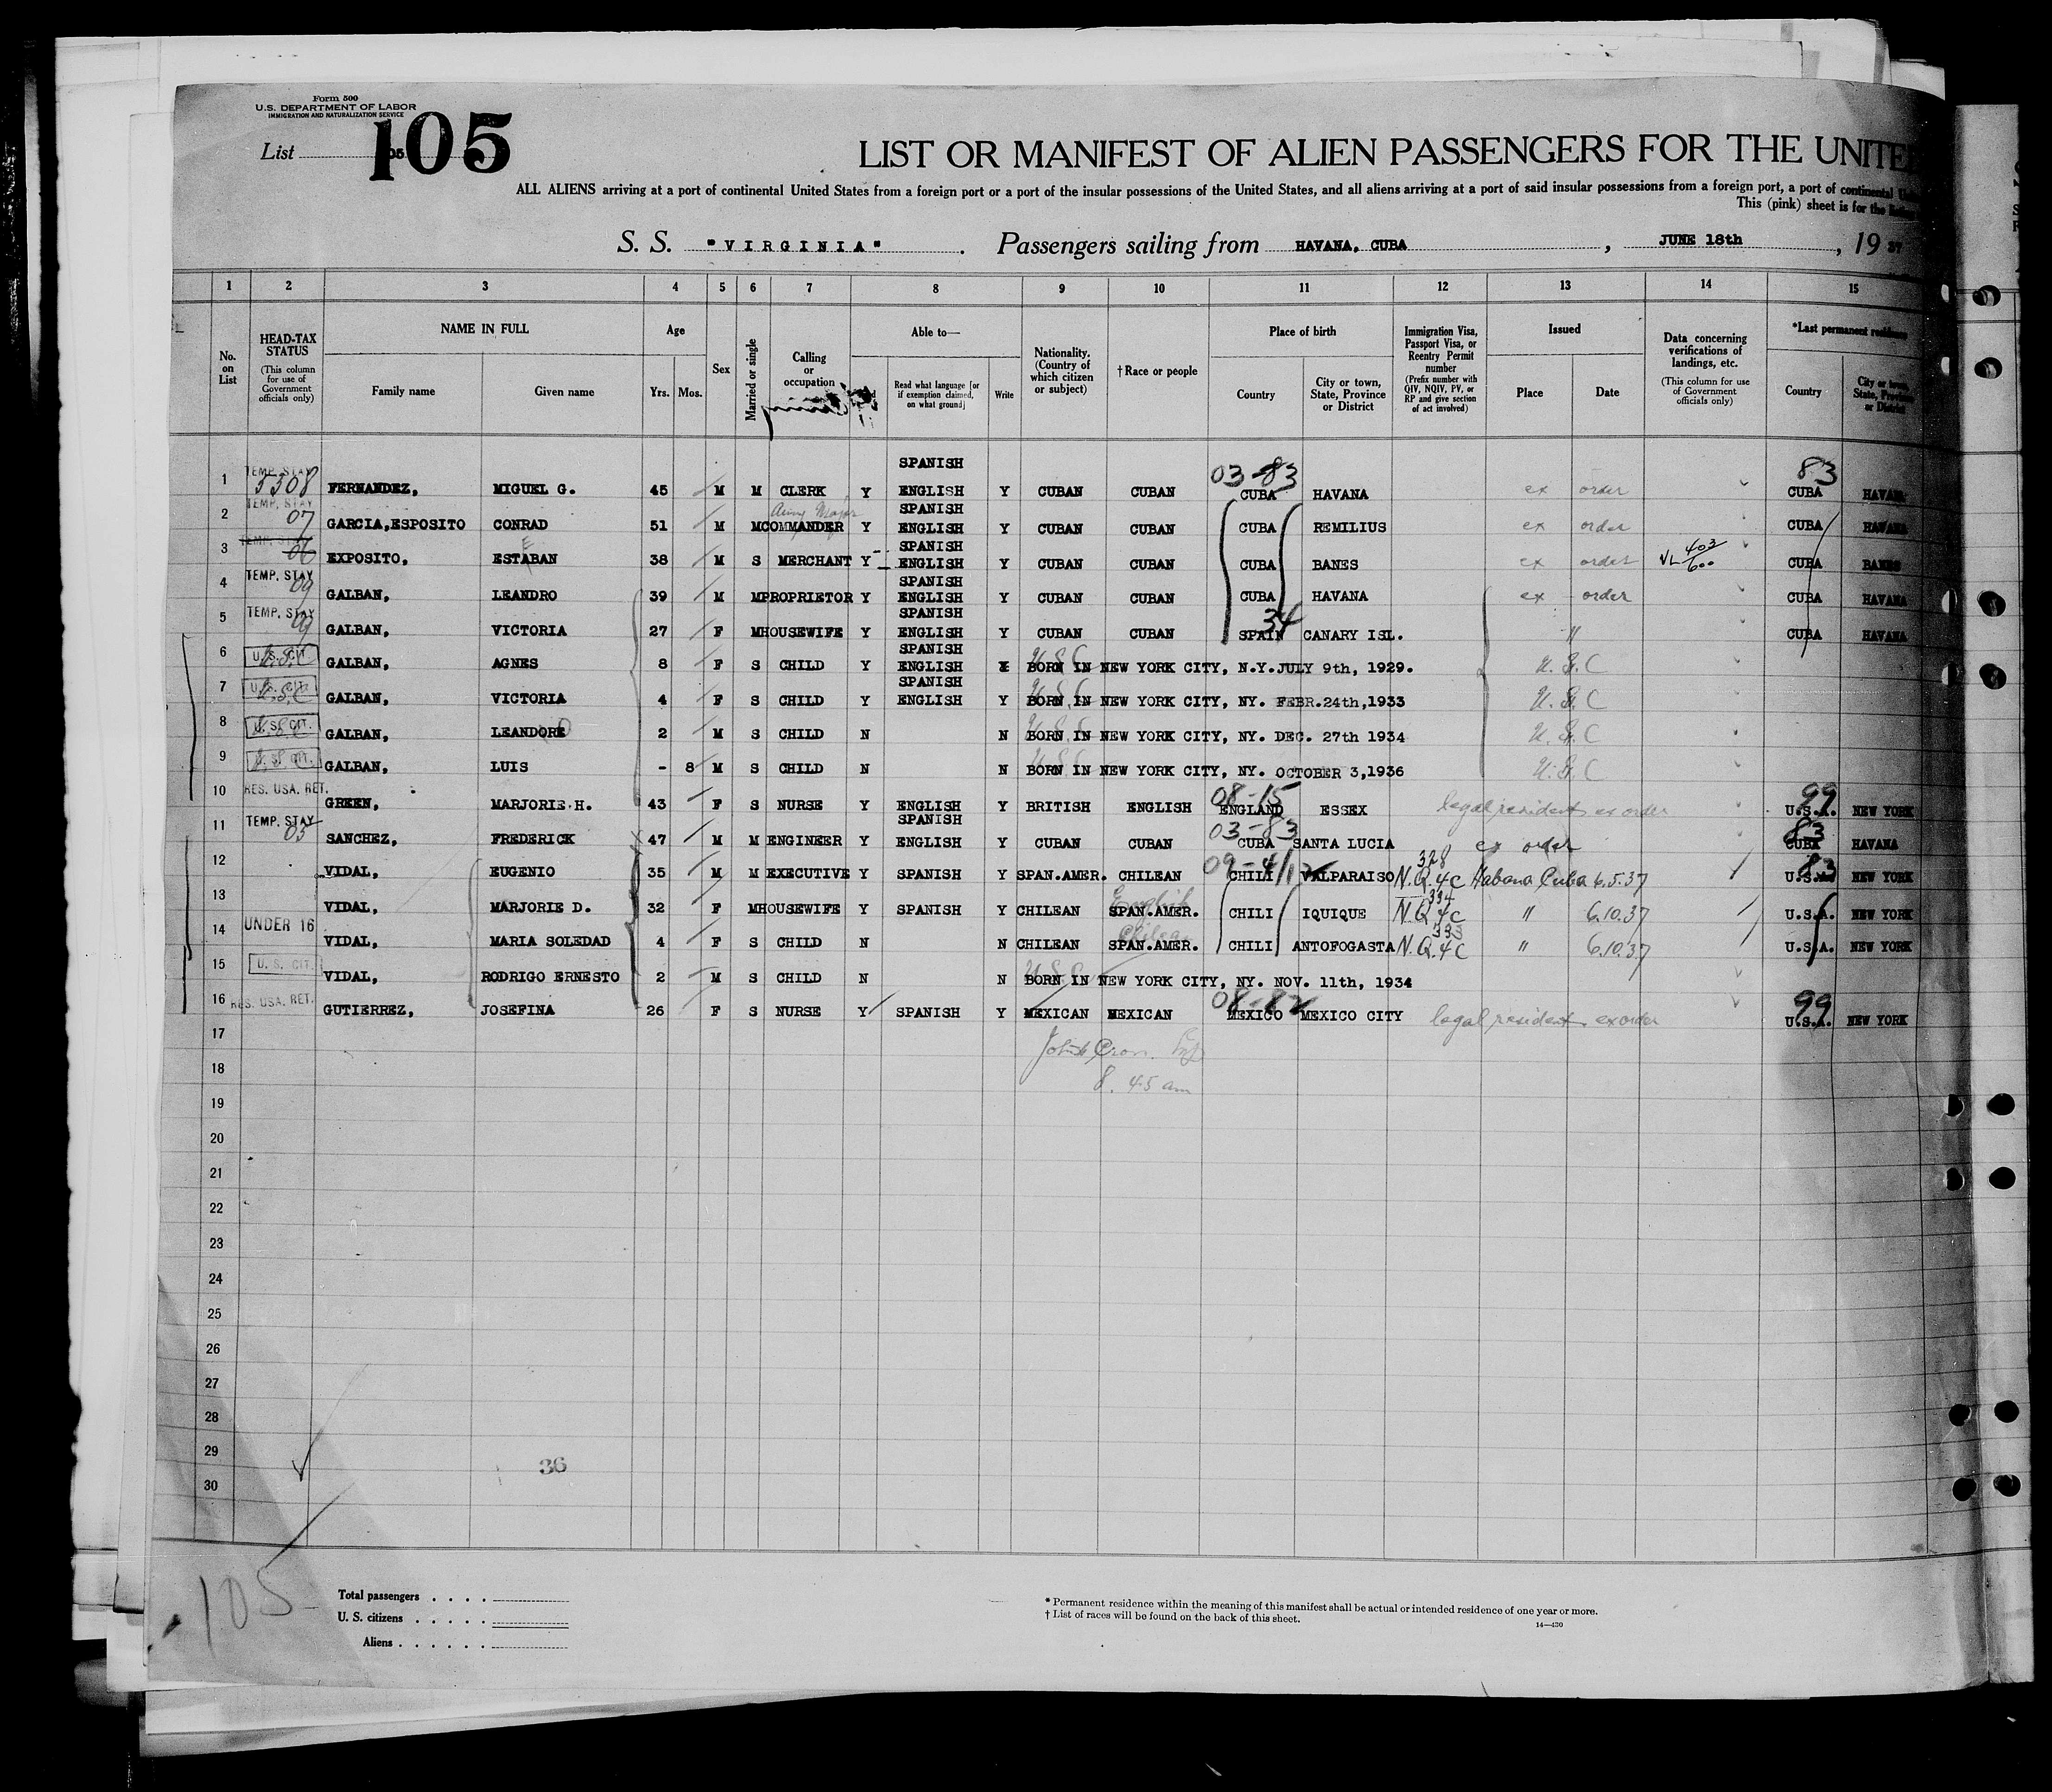 Form 500
U.S. DEPARTMENT OF LABOR
IMMIGRATION AND NATURALIZATION SERVICE
List 105
LIST OR MANIFEST OF ALIEN PASSENGERS FOR THE UNITE
ALL ALIENS arriving at a port of continental United States from a foreign port or a port of the insular possessions of the United States, and all aliens arriving at a port of said insular possessions from a foreign port, a port of continental
This (pink) sheet is for the
S. S. "VIRGINIA". Passengers sailing from HAVANA, CUBA, JUNE 18th, 1937
1 2 3 4 5 6 7 8 9 10 11 12 13 14 15
No. on List
HEAD-TAX STATUS (This column for use of Government officials only)
NAME IN FULL Family name Given name
Age Yrs. Mos.
Sex
Married or single
Calling or occupation
Able to— Read what language [or if exemption claimed, on what ground] Write
Nationality. (Country of which citizen or subject)
†Race or people
Place of birth Country City or town, State, Province or District
Immigration Visa, Passport Visa, or Reentry Permit number (Prefix number with QIV, NQIV, PV, or RP and give section of act involved)
Issued Place Date
Data concerning verifications of landings, etc. (This column for use of Government officials only)
*Last permanent residence Country City or town, State, Province or District
1 TEMP. STAY 5308 FERNANDEZ, MIGUEL G. 45 M M CLERK Y SPANISH ENGLISH Y CUBAN CUBAN 03-83 CUBA HAVANA ex order 83 CUBA HAVANA
2 TEMP. STAY 07 GARCIA,ESPOSITO CONRAD 51 M M COMMANDER Army Major Y SPANISH ENGLISH Y CUBAN CUBAN CUBA REMILIUS ex order CUBA HAVANA
3 TEMP. STAY 06 EXPOSITO, ESTABAN E 38 M S MERCHANT Y SPANISH ENGLISH Y CUBAN CUBAN CUBA BANES ex order VL 403/600 CUBA BANES
4 TEMP. STAY 09 GALBAN, LEANDRO 39 M M PROPRIETOR Y SPANISH ENGLISH Y CUBAN CUBAN CUBA HAVANA ex order CUBA HAVANA
5 TEMP. STAY 09 GALBAN, VICTORIA 27 F M HOUSEWIFE Y SPANISH ENGLISH Y CUBAN CUBAN 34 SPAIN CANARY ISL. " CUBA HAVANA
6 U.S. CIT. U.S.C GALBAN, AGNES 8 F S CHILD Y SPANISH ENGLISH U S C BORN IN NEW YORK CITY, N.Y.JULY 9th, 1929. U.S.C
7 U.S. CIT. U.S.C GALBAN, VICTORIA 4 F S CHILD Y SPANISH ENGLISH Y U S C BORN IN NEW YORK CITY, NY. FEBR.24th,1933 U.S.C
8 U.S. CIT. U.S.C GALBAN, LEANDORE 2 M S CHILD N N U S C BORN IN NEW YORK CITY, NY. DEC. 27th 1934 U.S.C
9 U.S. CIT. U.S.C GALBAN, LUIS - 8 M S CHILD N N U S C BORN IN NEW YORK CITY, NY. OCTOBER 3,1936 U.S.C
10 RES. USA. RET. GREEN, MARJORIE H. 43 F S NURSE Y ENGLISH Y BRITISH ENGLISH 08-15 ENGLAND ESSEX legal resident ex order 99 U.S.A. NEW YORK
11 TEMP. STAY 05 SANCHEZ, FREDERICK X 47 M M ENGINEER Y SPANISH ENGLISH Y CUBAN CUBAN 03-83 CUBA SANTA LUCIA ex order 83 CUBA HAVANA
12 VIDAL, EUGENIO 35 M M EXECUTIVE Y SPANISH Y SPAN.AMER. CHILEAN CHILI VALPARAISO 328 N.Q.4C Habana Cuba 6.5.37 83 U.S.A. NEW YORK
13 VIDAL, MARJORIE D. 32 F M HOUSEWIFE Y SPANISH Y CHILEAN English SPAN.AMER. CHILI IQUIQUE 334 N.Q.4C " 6.10.37 U.S.A. NEW YORK
14 UNDER 16 VIDAL, MARIA SOLEDAD 4 F S CHILD N N CHILEAN Chilean SPAN.AMER. CHILI ANTOFOGASTA 333 N.Q.4C " 6.10.37 U.S.A. NEW YORK
15 U. S. CIT. VIDAL, RODRIGO ERNESTO 2 M S CHILD N N U S C BORN IN NEW YORK CITY, NY. NOV. 11th, 1934
16 RES. USA. RET. GUTIERREZ, JOSEFINA 26 F S NURSE Y SPANISH Y MEXICAN MEXICAN 08-82 MEXICO MEXICO CITY legal resident ex order 99 U.S.A. NEW YORK
17
18 8.45 am
19
20
21
22
23
24
25
26
27
28
29
36
30
105
Total passengers
U. S. citizens
Aliens
* Permanent residence within the meaning of this manifest shall be actual or intended residence of one year or more.
† List of races will be found on the back of this sheet.
14—430